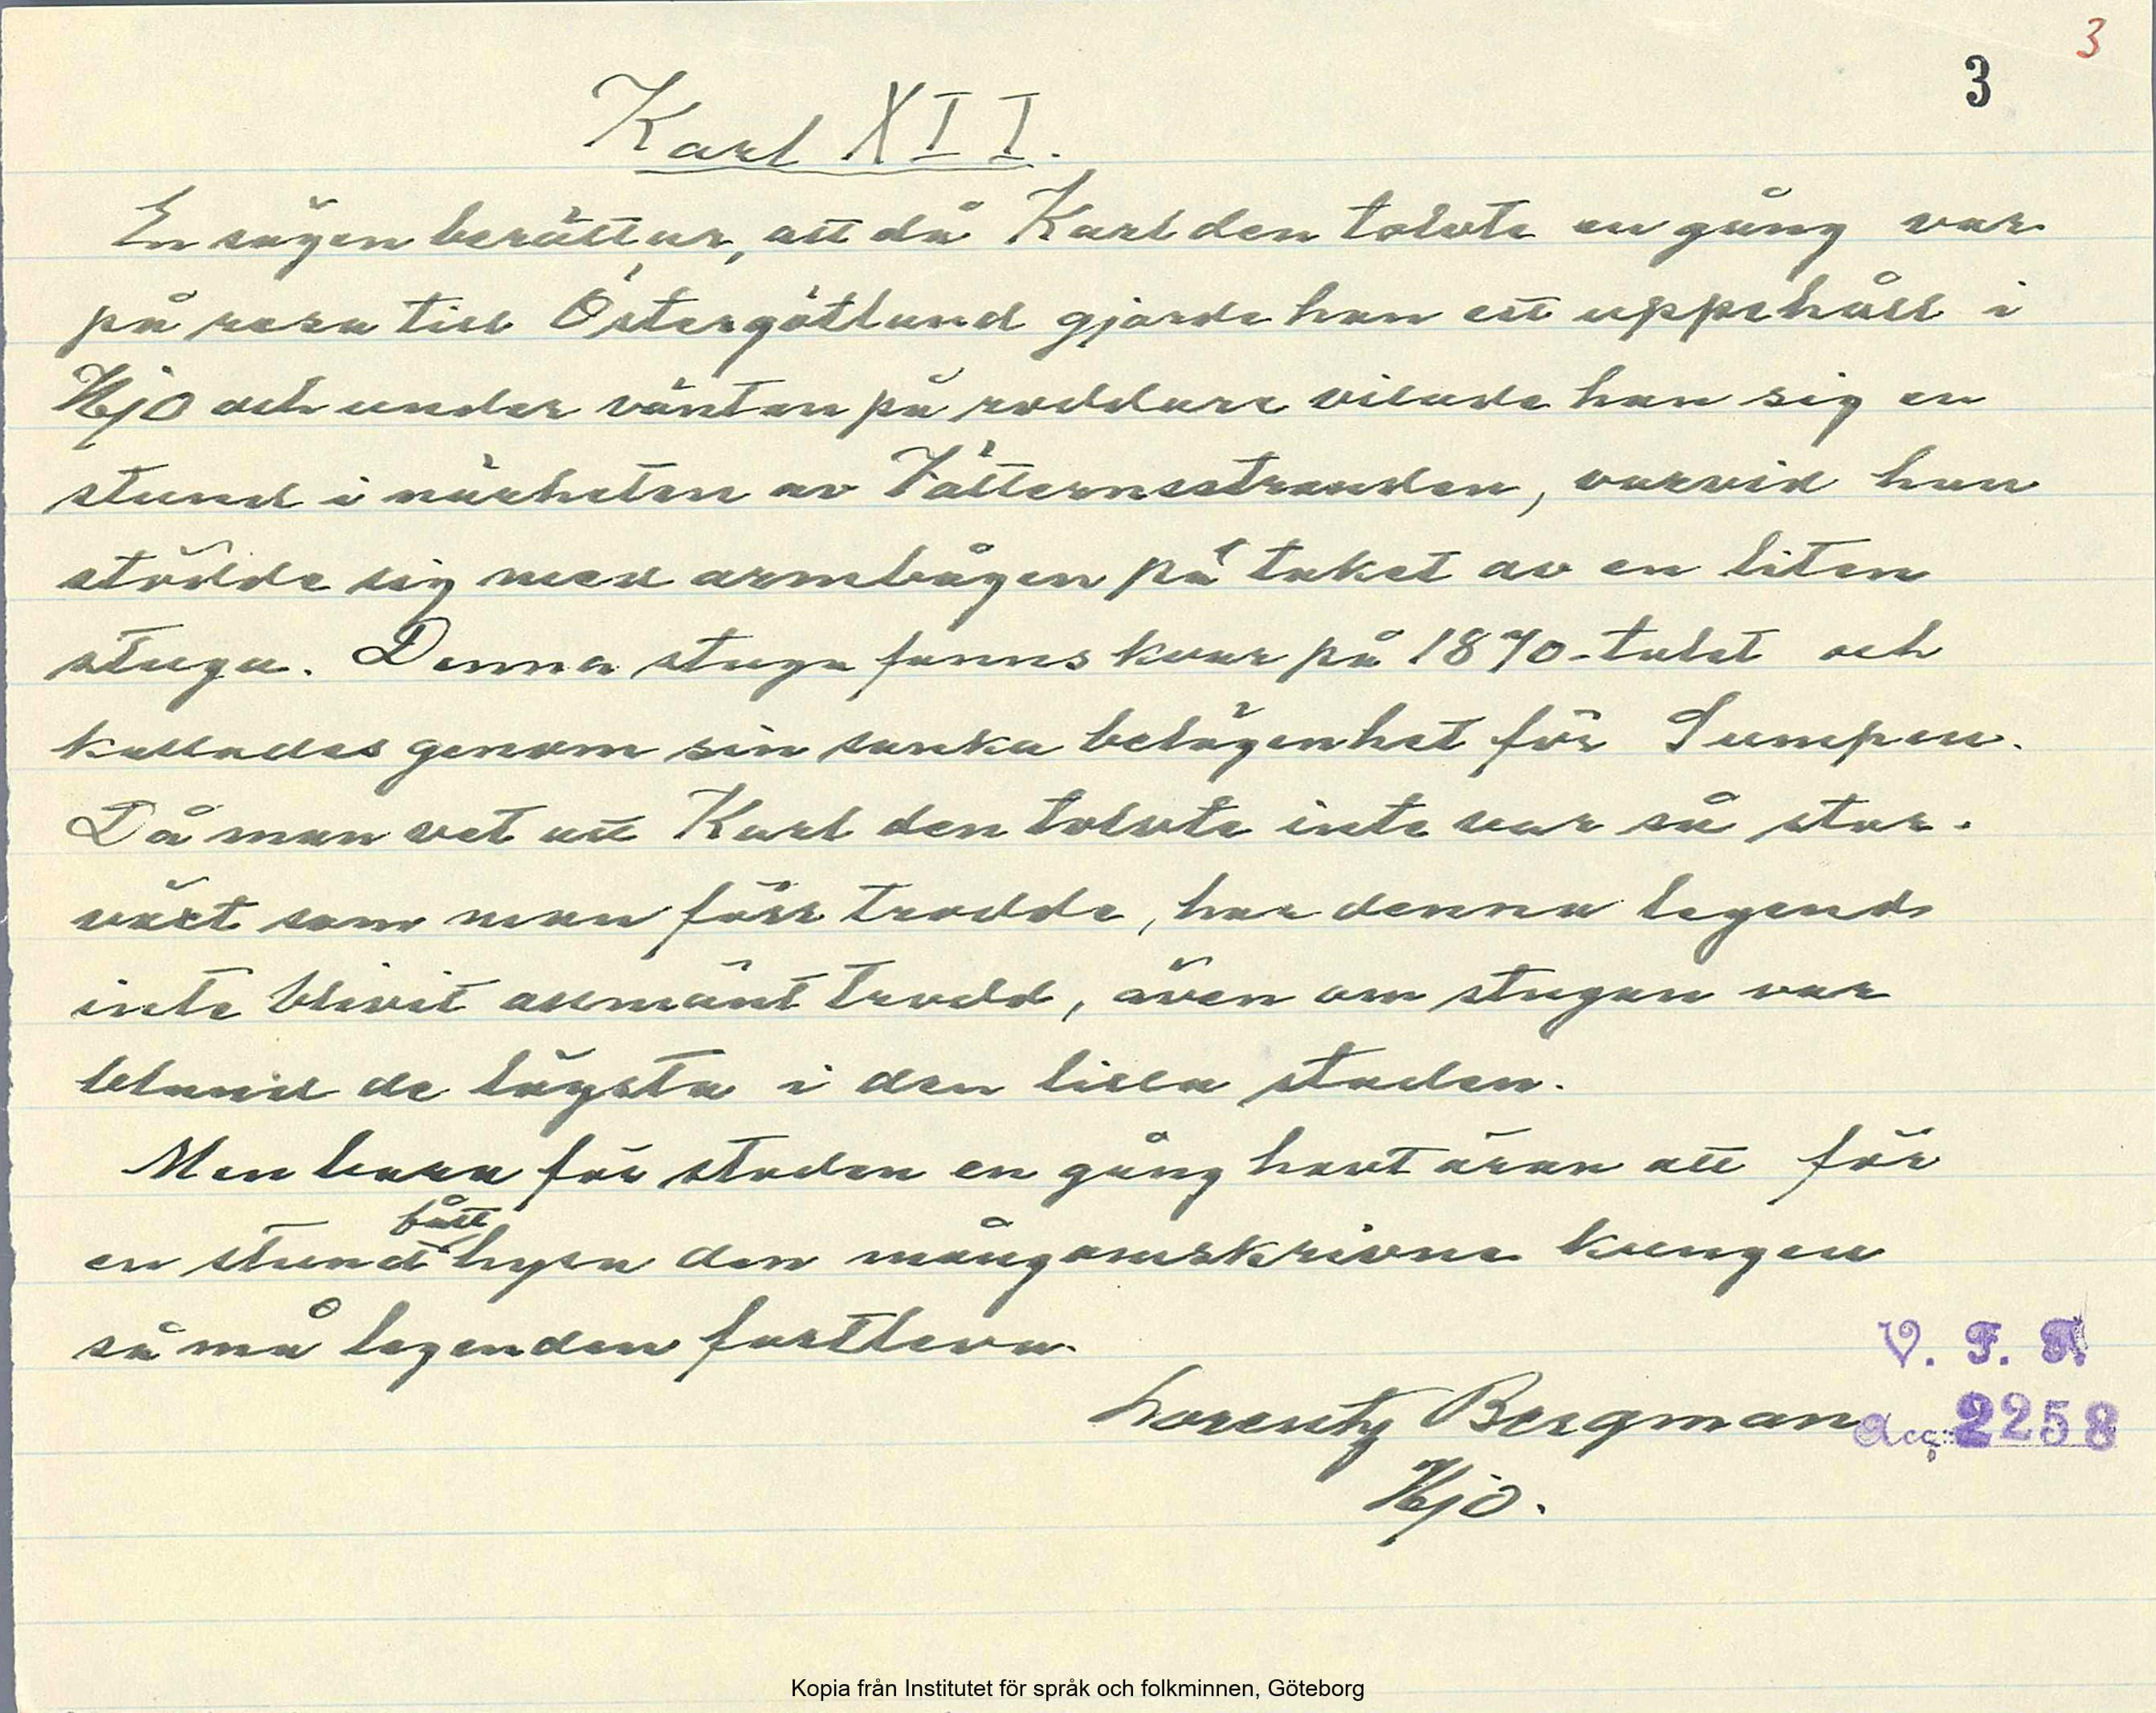 3
3
Karl XII.
En sägen berättar, att då Karl den tolvte en gång var
på resa till Östergötland gjorde han ett uppehåll i
Hjo och under väntan på roddare vilade han sig en
stund i närheten av Vätternsstranden, varvid han
stödde sig med armbågen på taket av en liten
stuga. Denna stuga fanns kvar på 1870-talet och
kallades genom sin sanka belägenhet för Sumpen.
Då man vet att Karl den tolvte inte var så stor-
växt som man förr trodde, har denna legend
inte blivit allmänt trodd, även om stugan var
bland de lägsta i den lilla staden.
Men bara för staden en gång havt äran att för
fått
en stund hysa den mångomskrivne kungen
så må legenden fortleva.
Lorentz Bergman
Hjo.
V. F. F.
Acc. 2258
Kopia från Institutet för språk och folkminnen, Göteborg